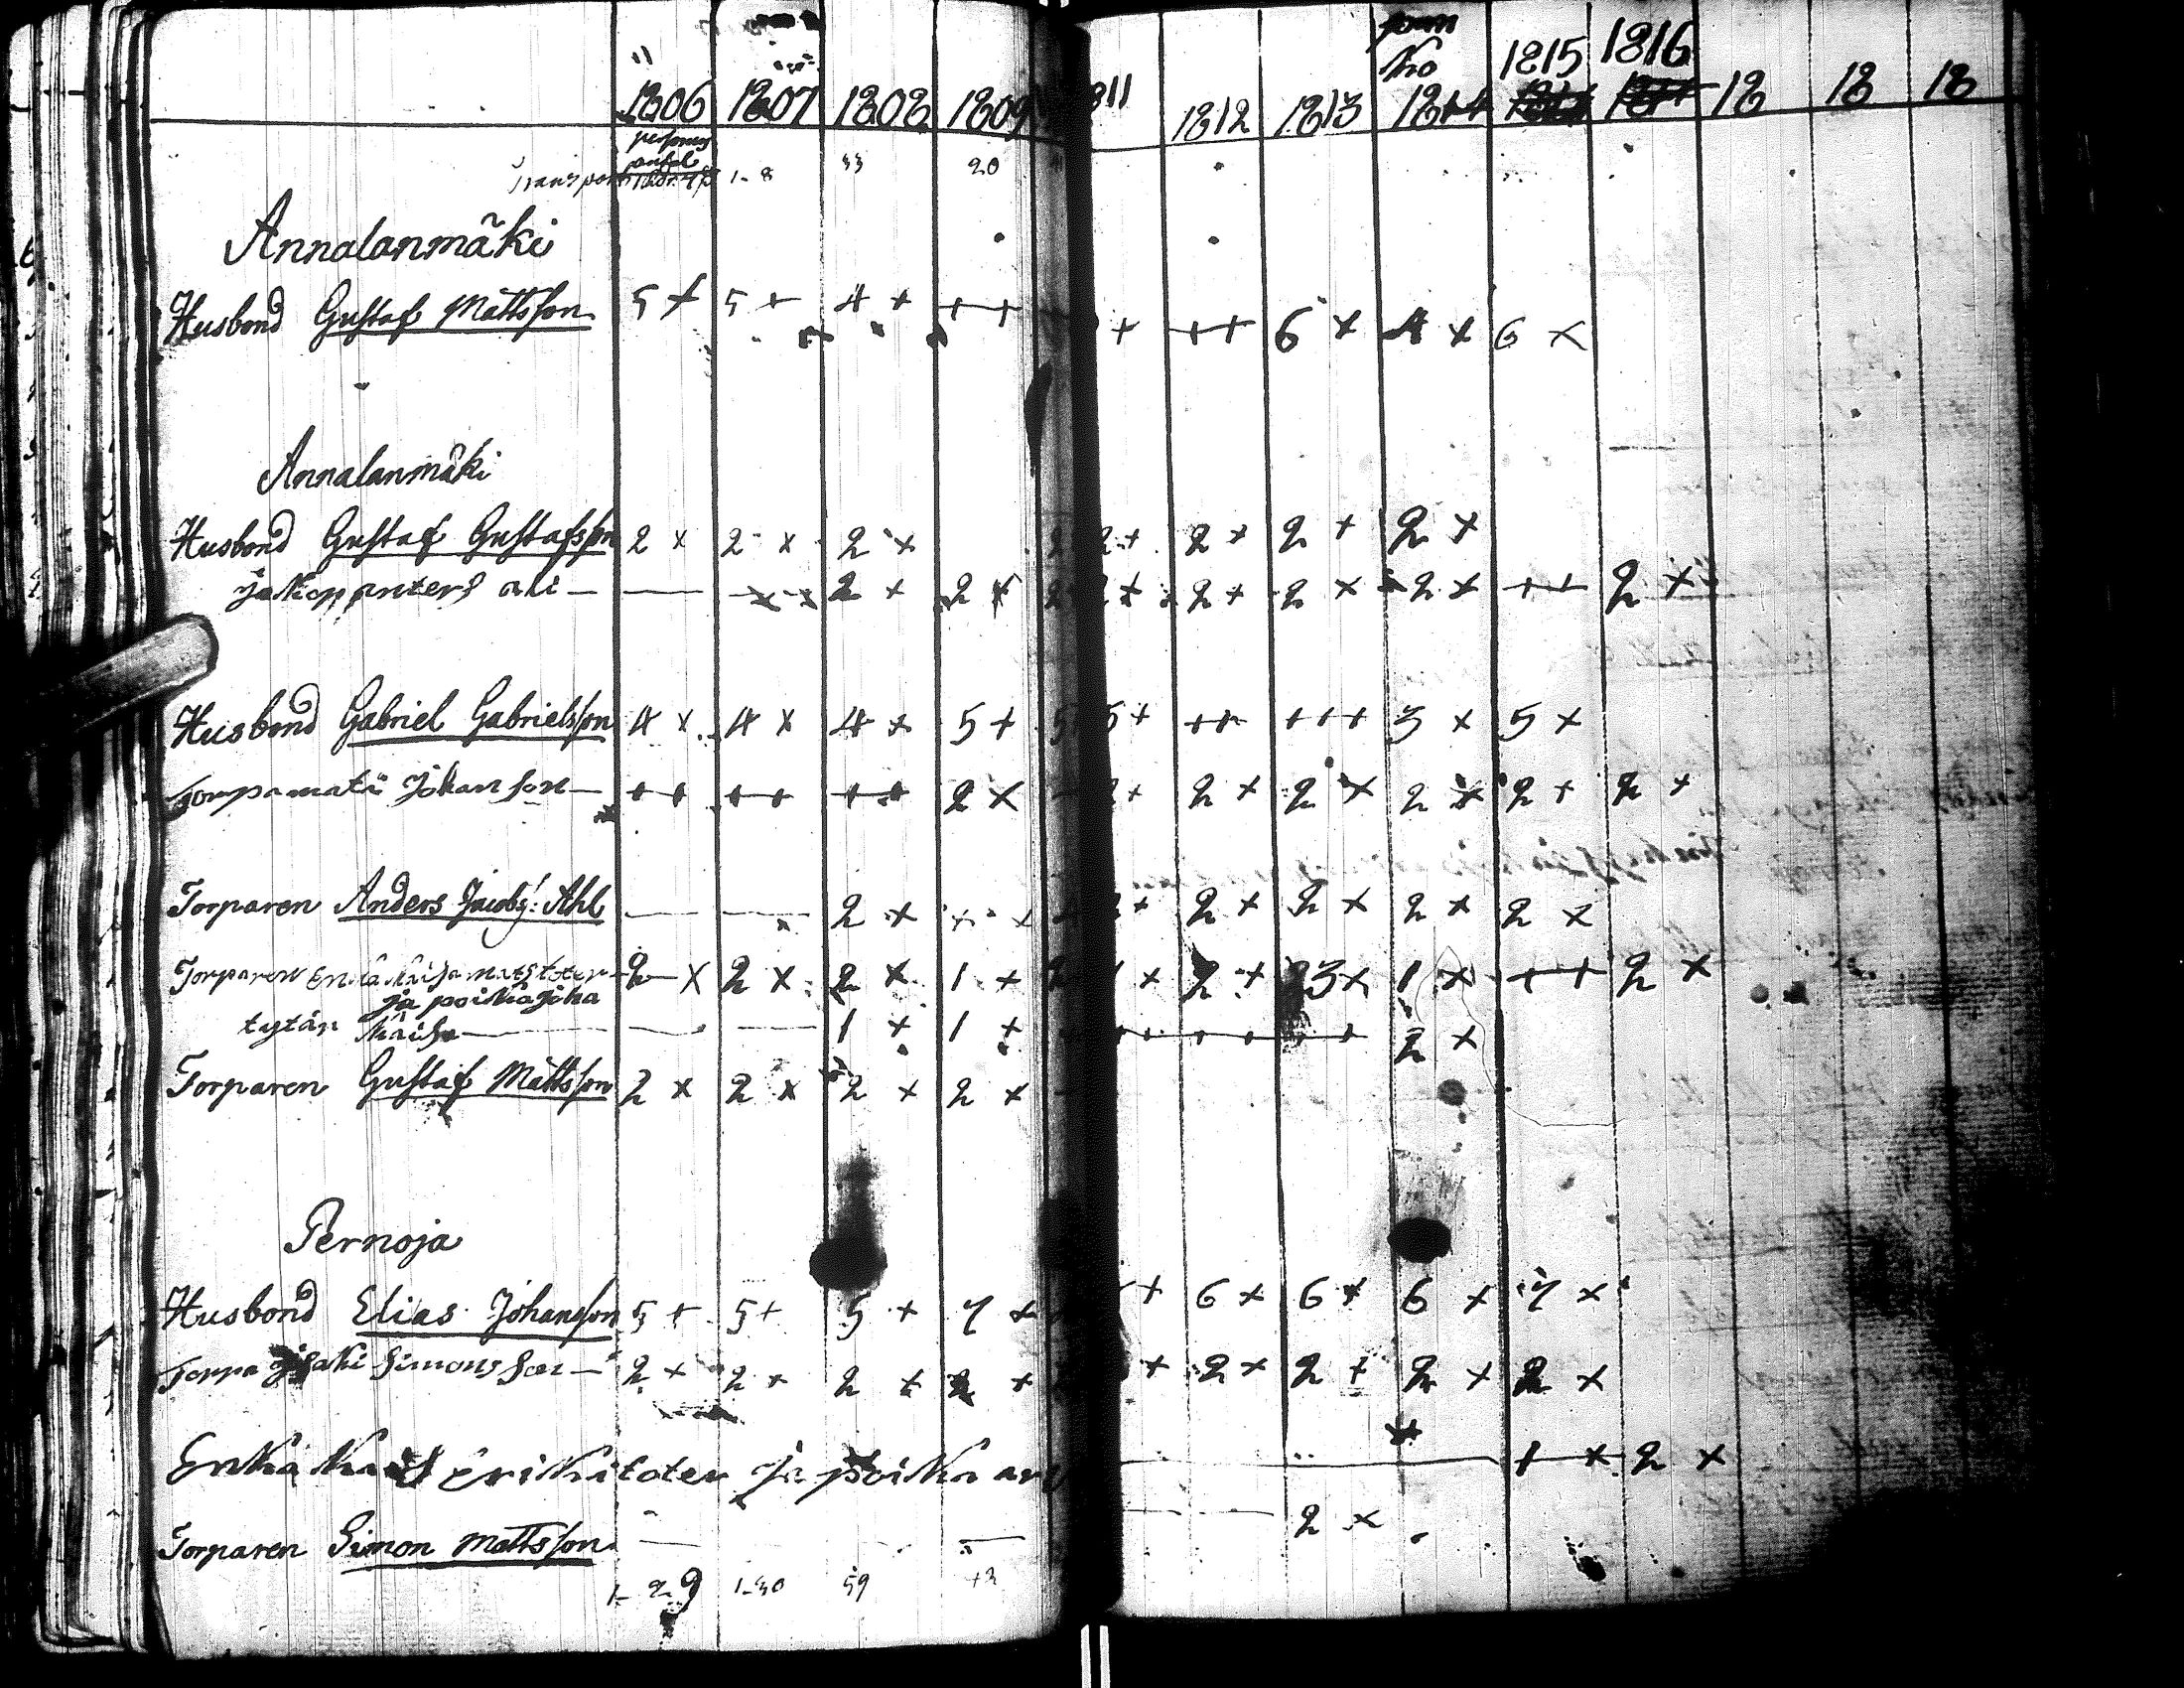 1815 1816
1806 1807 1808 1809 1811 1812 1813 1814 18 18 18
Transport 1-8 33 20
Annalanmäki
Husbond Gustaf Mattsson 5 + 5 + 4 + + + + + + 6 + 4 x 6 x
Annalanmäki
Husbond Gustaf Gustafsson 2 x 2 x 2 x 2 + 2 + 2 + 2 x
— — 2 + 2 x 2 + 2 + 2 x 2 x + + 2 x
Husbond Gabriel Gabrielsson 4 x 4 x 4 x 5 + 5 + + + + + + 3 x 5 x
Torpa mati Johansson — + + + + + + 2 x 2 + 2 x 2 x 2 x 2 + 2 +
Torparen Anders Jacobs: Ahl — — 2 x + x 2 + 2 x 2 x 2 x 2 x
Torparen Enkä matstoter 2 x 2 x 2 x 1 + + 2 + 3 x 1 x + + 2 x
ja poika joha
tytär — — 1 + 1 + + + + + + + 2 x
Torparen Gustaf Mattsson 2 x 2 x 2 x 2 x
Pernoja
Husbond Elias Johansson 5 + 5 + 5 + 7 x + 6 x 6 x 6 x 7 x
Torpa Simonsson — 2 + 2 + 2 x 2 x + 2 x 2 + 2 x 2 x
Enkä erikitoter ja poika 1 x 2 x
Torparen Simon Mattsson — — 2 x
1-29 1-30 59